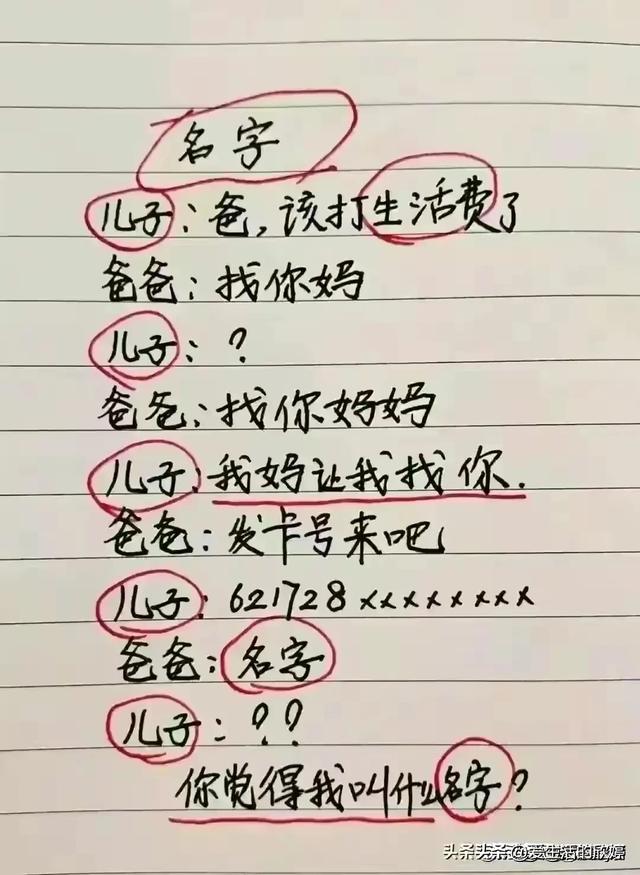 名字
儿子：爸，该打生活费了
爸爸：找你妈
儿子：？
爸爸：找你妈妈
儿子：我妈让我找你.
爸爸：发卡号来吧
儿子：621728xxxxxxxx
爸爸：名字
儿子：？？
你觉得我叫什么名字？
头条 @爱生活的欣婷